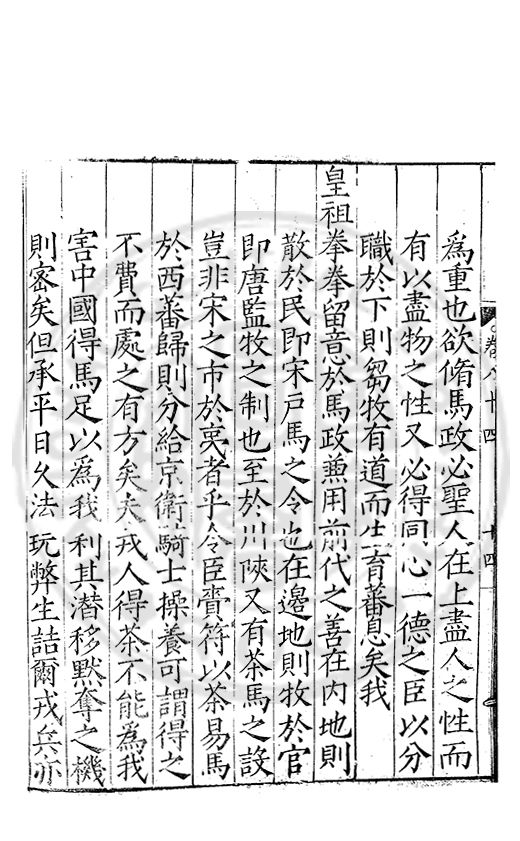 為重也欲脩馬政必聖人在上盡人之性而
有以盡物之性又必得同心一德之臣以分
職於下則芻牧有道而生育蕃息矣我
皇祖拳拳留意於馬政兼用前代之善在內地則
散於民即宋戶馬之令也在邊地則牧於官
即唐監牧之制也至於川陝又有茶馬之設
豈非宋之市於夷者乎令臣賷符以茶易馬
於西蕃歸則分給京衛騎士操養可謂得之
不費而處之有方矣夫戎人得茶不能為我
害中國得馬足以為我利其潜移默奪之機
則密矣但承平日久法玩弊生詰爾戎兵亦
卷八十四 十四